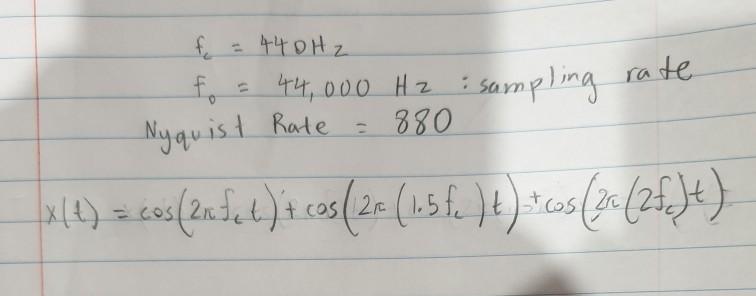 f_c = 440Hz
f_o = 44,000 Hz : sampling rate
Nyquist Rate = 880
x(t) = cos(2πf_c t) + cos(2π(1.5f_c)t) + cos(2π(2f_c)t)